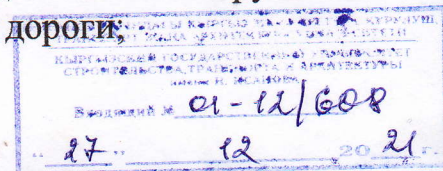 дороги;
КЫРГЫЗСКИЙ ГОСУДАРСТВЕННЫЙ УНИВЕРСИТЕТ
СТРОИТЕЛЬСТВА, ТРАНСПОРТА И АРХИТЕКТУРЫ
имени Н. ИСАНОВА
Входящий № 01-12/608
"27" 12 2021 г.